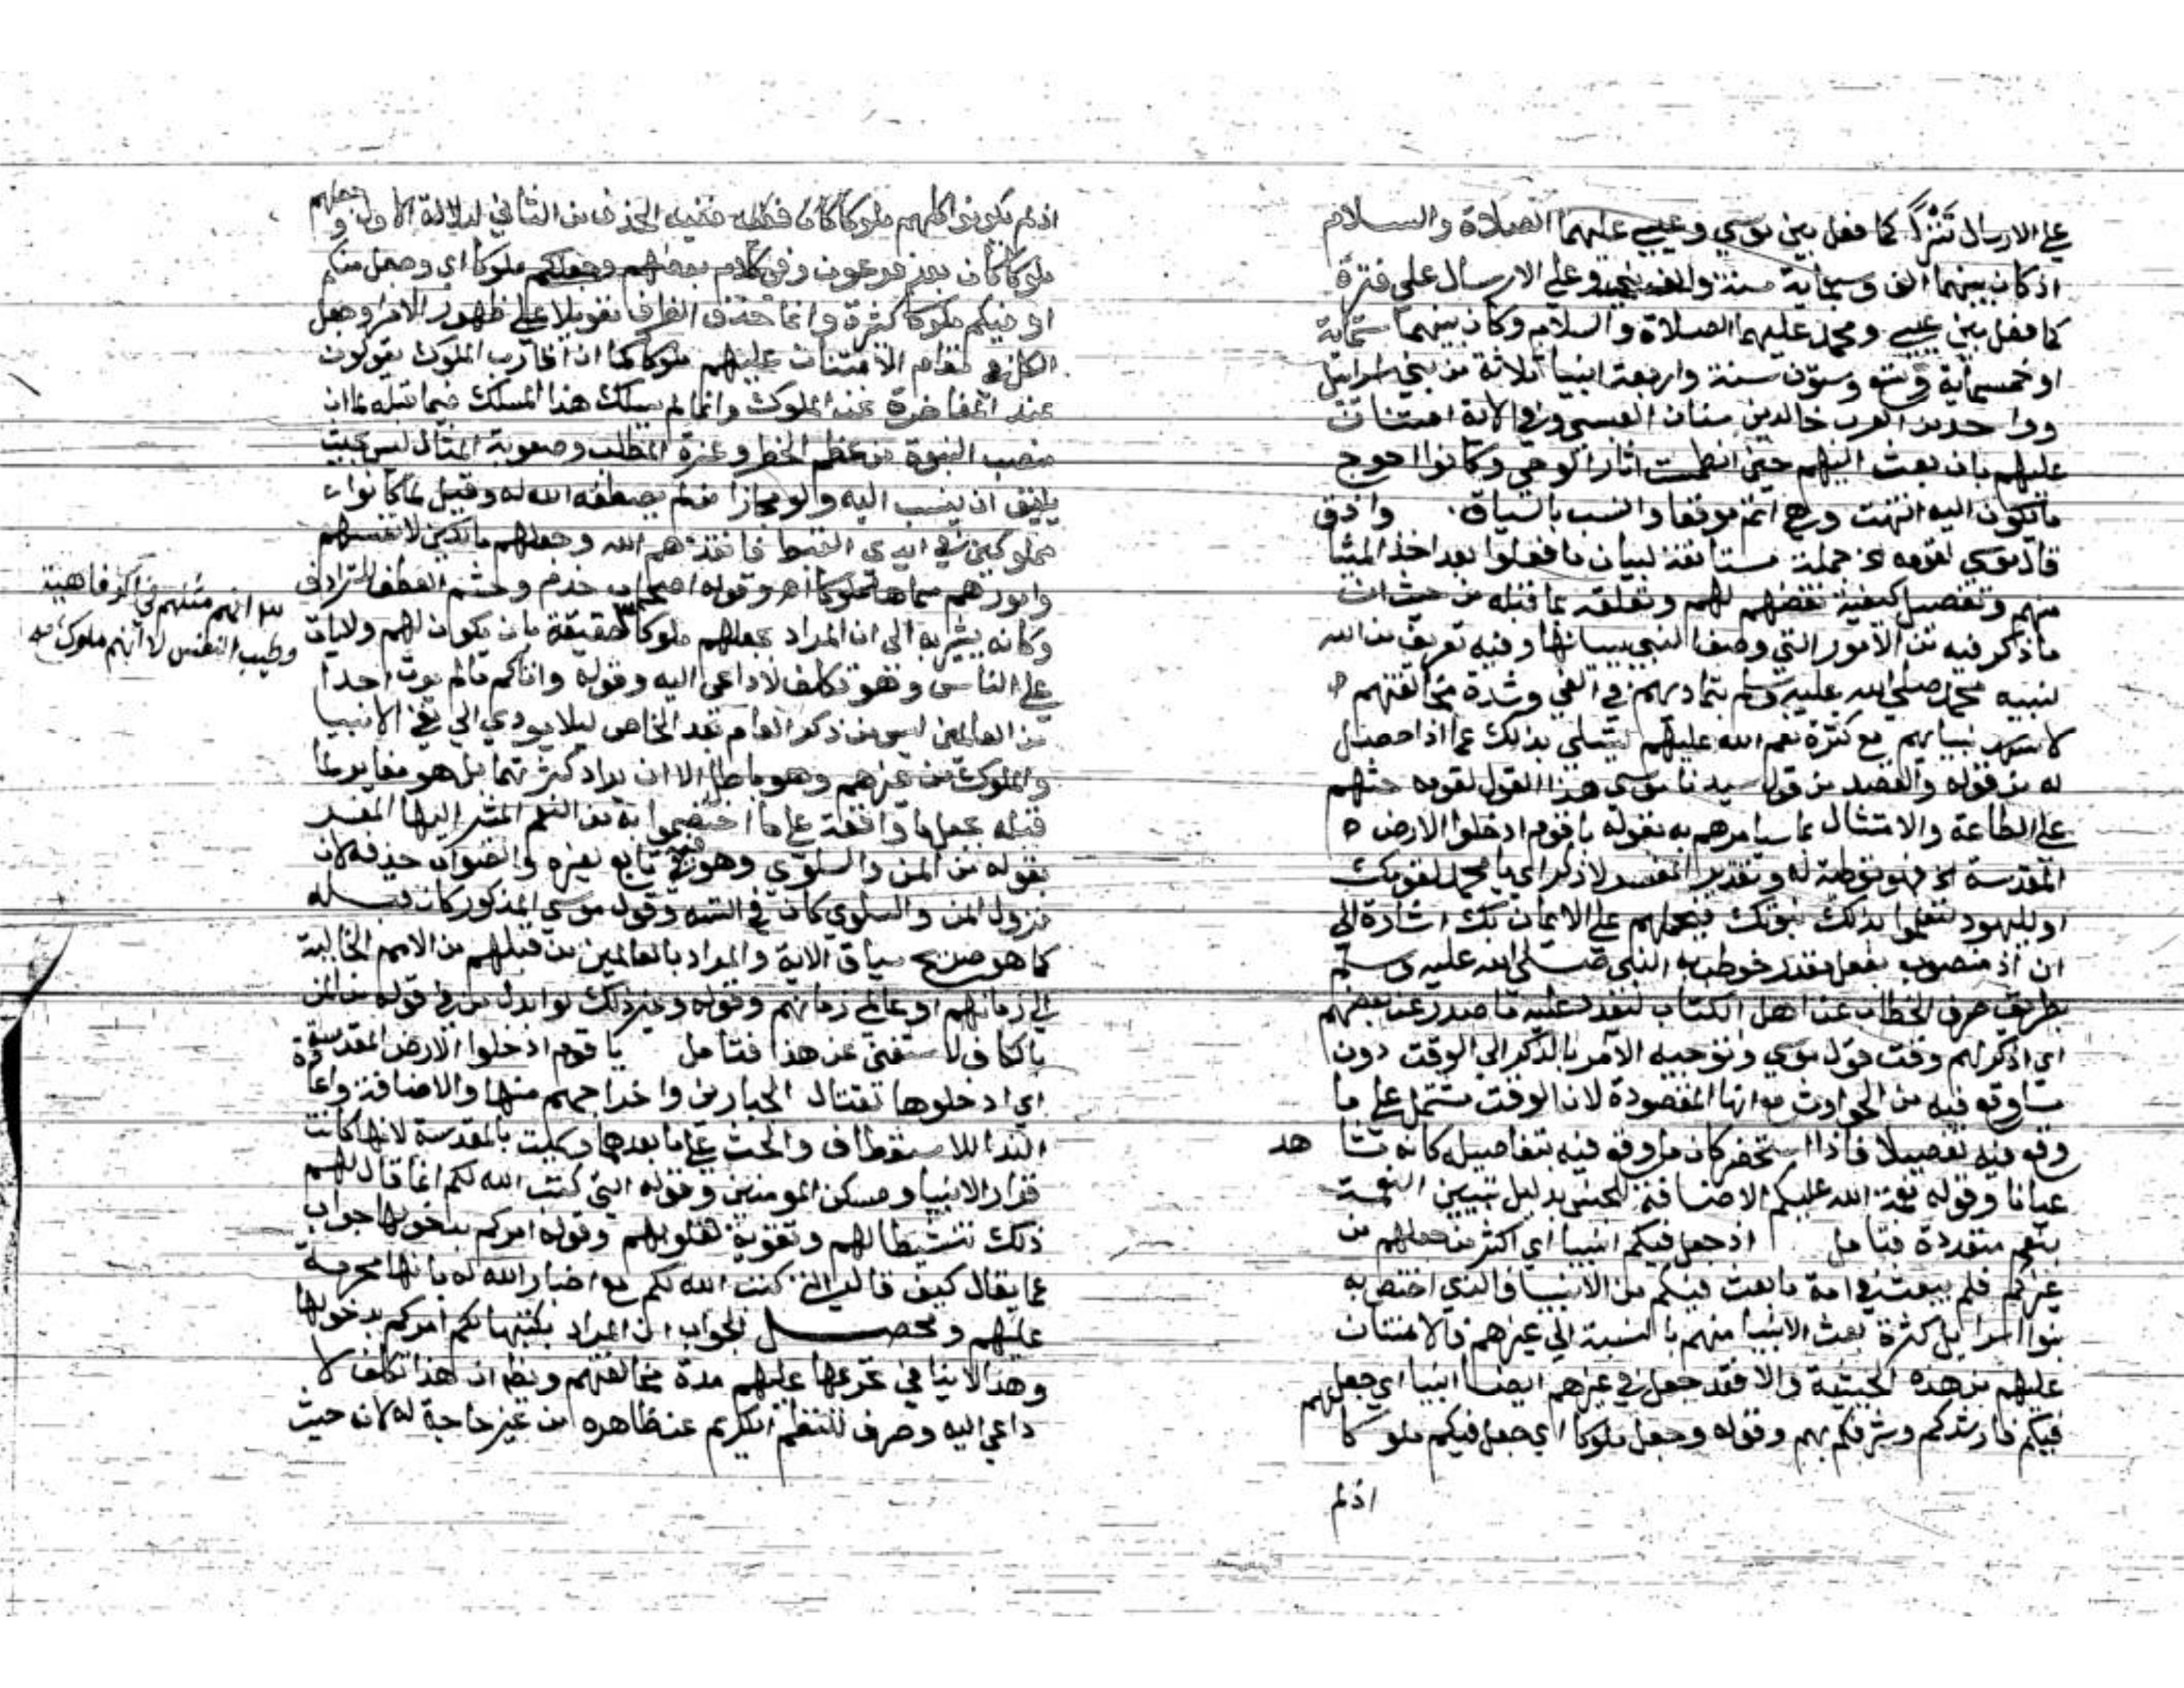 على الارسال تترًا كما فعل بين موسي وعيسي عليهما الصلاة والسلام
اذ كان بينهما الف وسبعماية سنة والف نبي وعلي الارسال على فترة
كما فعل بين عيسي ومحمد عليهما الصلاة والسلام وكان بينهما ستماية
او خمسماية وستون سنة واربعة انبيا ثلاثة من بني اسرايل
وواحد من العرب خالد بن سنان العبسي وفي الاية امتنان
عليهم بان بعث اليهم حين انطمست اثار الوحي وكانوا احوج
ما يكون اليه انتهت وهي اتم موقعا وانسب بالسياق. واذ ق
قال موسي لقومه الخ جملة مستانفة لبيان ما فعلوا بعد اخذ الميثا
منهم وتفصيل كيفية نقضهم لهم وتعلقه بما قبله من حيث ان
ما ذكر فيه من الامور التي وصف النبي ببيانها وفيه تعريف من الله
لنبيه محمد صلي الله عليه وسلم بتماديهم في الغي وشدة مخالفتهم
لانبيايهم مع كثرة نعم الله عليهم ليتسلي بذلك عما اذا حصل
له من قومه والقصد من قول سيدنا موسي هذا القول لقومه حثهم
على الطاعة والامتثال بما سيامرهم به بقوله يا قوم ادخلوا الارض
المقدسة الخ فهو توطية له وتقدير المفسر لاذكر اي يا محمد لقومك
او لليهود ليعلموا بذلك نبوتك فيحملهم على الايمان بك اشارة الى
ان اذ منصوب بفعل مقدر خوطب به النبي صلى الله عليه وسلم
بطريق صرف الخطاب عن اهل الكتاب ليعدد عليه ما صدر عن بعضهم
اي اذكر لهم وقت قول موسي وتوجيه الامر بالذكر الي الوقت دون
ما وقع فيه من الحوادث مع انها المقصودة لان الوقت مشتمل على ما
وقع فيه تفصيلا فاذا استحضر كان ما وقع فيه بتفاصيله كانه مشا هد
عيانا وقوله نعمة الله عليكم الاضافة للجنس بدليل تبيين النعمة
بنعم متعددة فتامل اذ جعل فيكم انبيا اي اكثر من جعلهم من
غيركم فلم يبعث في امة ما بعث فيكم من الانبيا فالذي اختص به
بنوا اسرايل كثرة بعث الانبيا منهم بالنسبة الي غيرهم فالامتنان
عليهم من هذه الحيثية والا فقد جعل في غيرهم ايضا انبيا اي جعلهم
فيكم فارشدكم وشرفكم بهم وقوله وجعل ملوكا اي جعل فيكم ملوكا
اذ لم
اذ لم يكونوا كلهم ملوكا كان ففيه الحذف من الثاني لدلالة الاول وجعلهم
ملوكا كان بعد فرعون وفي كلام بعضهم وجعلكم ملوكا اي وجعل منكم
او فيكم ملوكا كثرة وانما حذف الظرف تعويلا على ظهور الامر وجعل
الكل في مقام الامتنان عليهم ملوكا كما ان اقارب الملوك يقولون
عند المفاخرة نحن الملوك وانما لم يسلك هذا المسلك فيما قبله لما ان
منصب النبوة من عظم الخطر وعزة المطلب وصعوبة المنال ليس بحيث
يليق ان ينسب اليه ولو مجازا من لم يصطفه الله له وقيل لما كانوا
مملوكين في ايدي القبط فانقذهم الله وجعلهم مالكين لانفسهم
وامورهم سماهم ملوكا اهـ وقوله اصحاب خدم وحشم العطف للترادف
وكانه يشير به الي ان المراد بجعلهم ملوكا حقيقة بان يكون لهم ولايات
انهم مثلهم في الرفاهية
وطيب النفس لا انهم ملوك
على الناس وهو تكلف لا داعي اليه وقوله واتاكم ما لم يوت احدا
من العالمين ليس من ذكر العام بعد الخاص ليلا يودي الي نفي الانبيا
والملوك من غيرهم وهو باطل الا ان يراد كثرتهما بل هو مغاير لما
قبله بجعل ما واقعة على ما اختصوا به من النعم المشير اليها المفسر
بقوله من المن والسلوي وهو تابع لغيره والصواب حذفه لان
نزول المن والسلوي كان في التيه وقول موسي المذكور كان قبله
كما هو صريح سياق الاية والمراد بالعالمين من قبلهم من الامم الخالية
الي زمانهم او عالمي زمانهم وقوله وغير ذلك لو ابدل من في قوله من المن
بالكاف لاستغنى عن هذا فتامل يا قوم ادخلوا الارض المقدسة
اي ادخلوها لقتال الجبارين واخراجهم منها والاضافة واعادة
الندا للاستعطاف والحث على ما بعدها وسميت بالمقدسة لانها كانت
قرار الانبيا ومسكن المومنين وقوله التي كتب الله لكم انما قال لهم
ذلك تنشيطا لهم وتقوية لقلوبهم وقوله امركم بدخولها جواب
عما يقال كيف قال التي كتب الله لكم مع اخبار الله له بانها محرمة
عليهم ومحصل الجواب ان المراد بكتبها لكم امركم بدخولها
وهذا لا ينافي تحريمها عليهم مدة مخالفتهم ويظهر ان هذا تكلف لا
داعي اليه وصرف للنظم الكريم عن ظاهره من غير حاجة له لان حيث